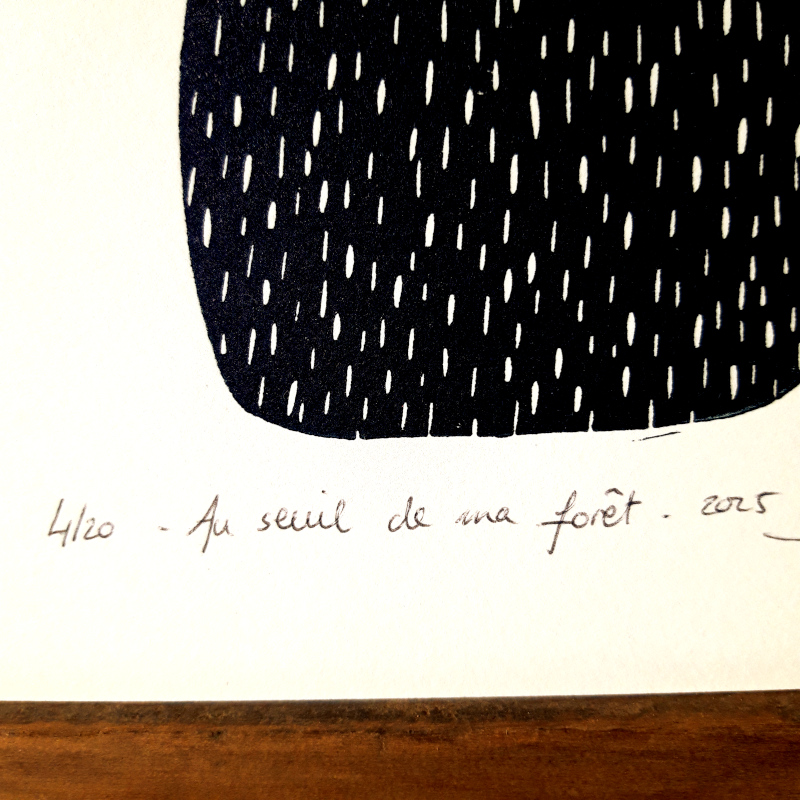 4/20 - Au seuil de ma forêt. 2025